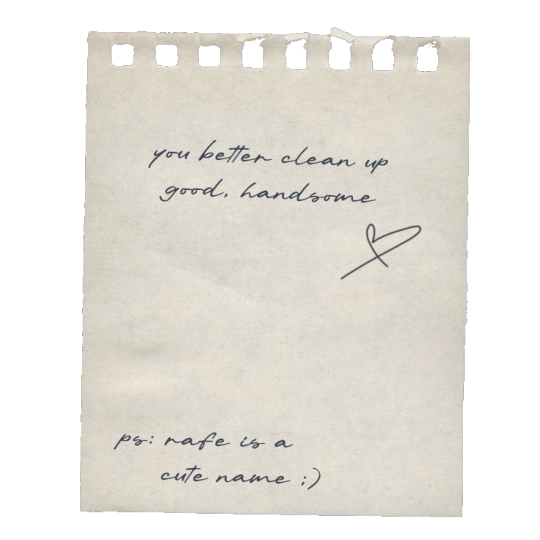 you better clean up
good, handsome
ps: rafe is a
cute name :)